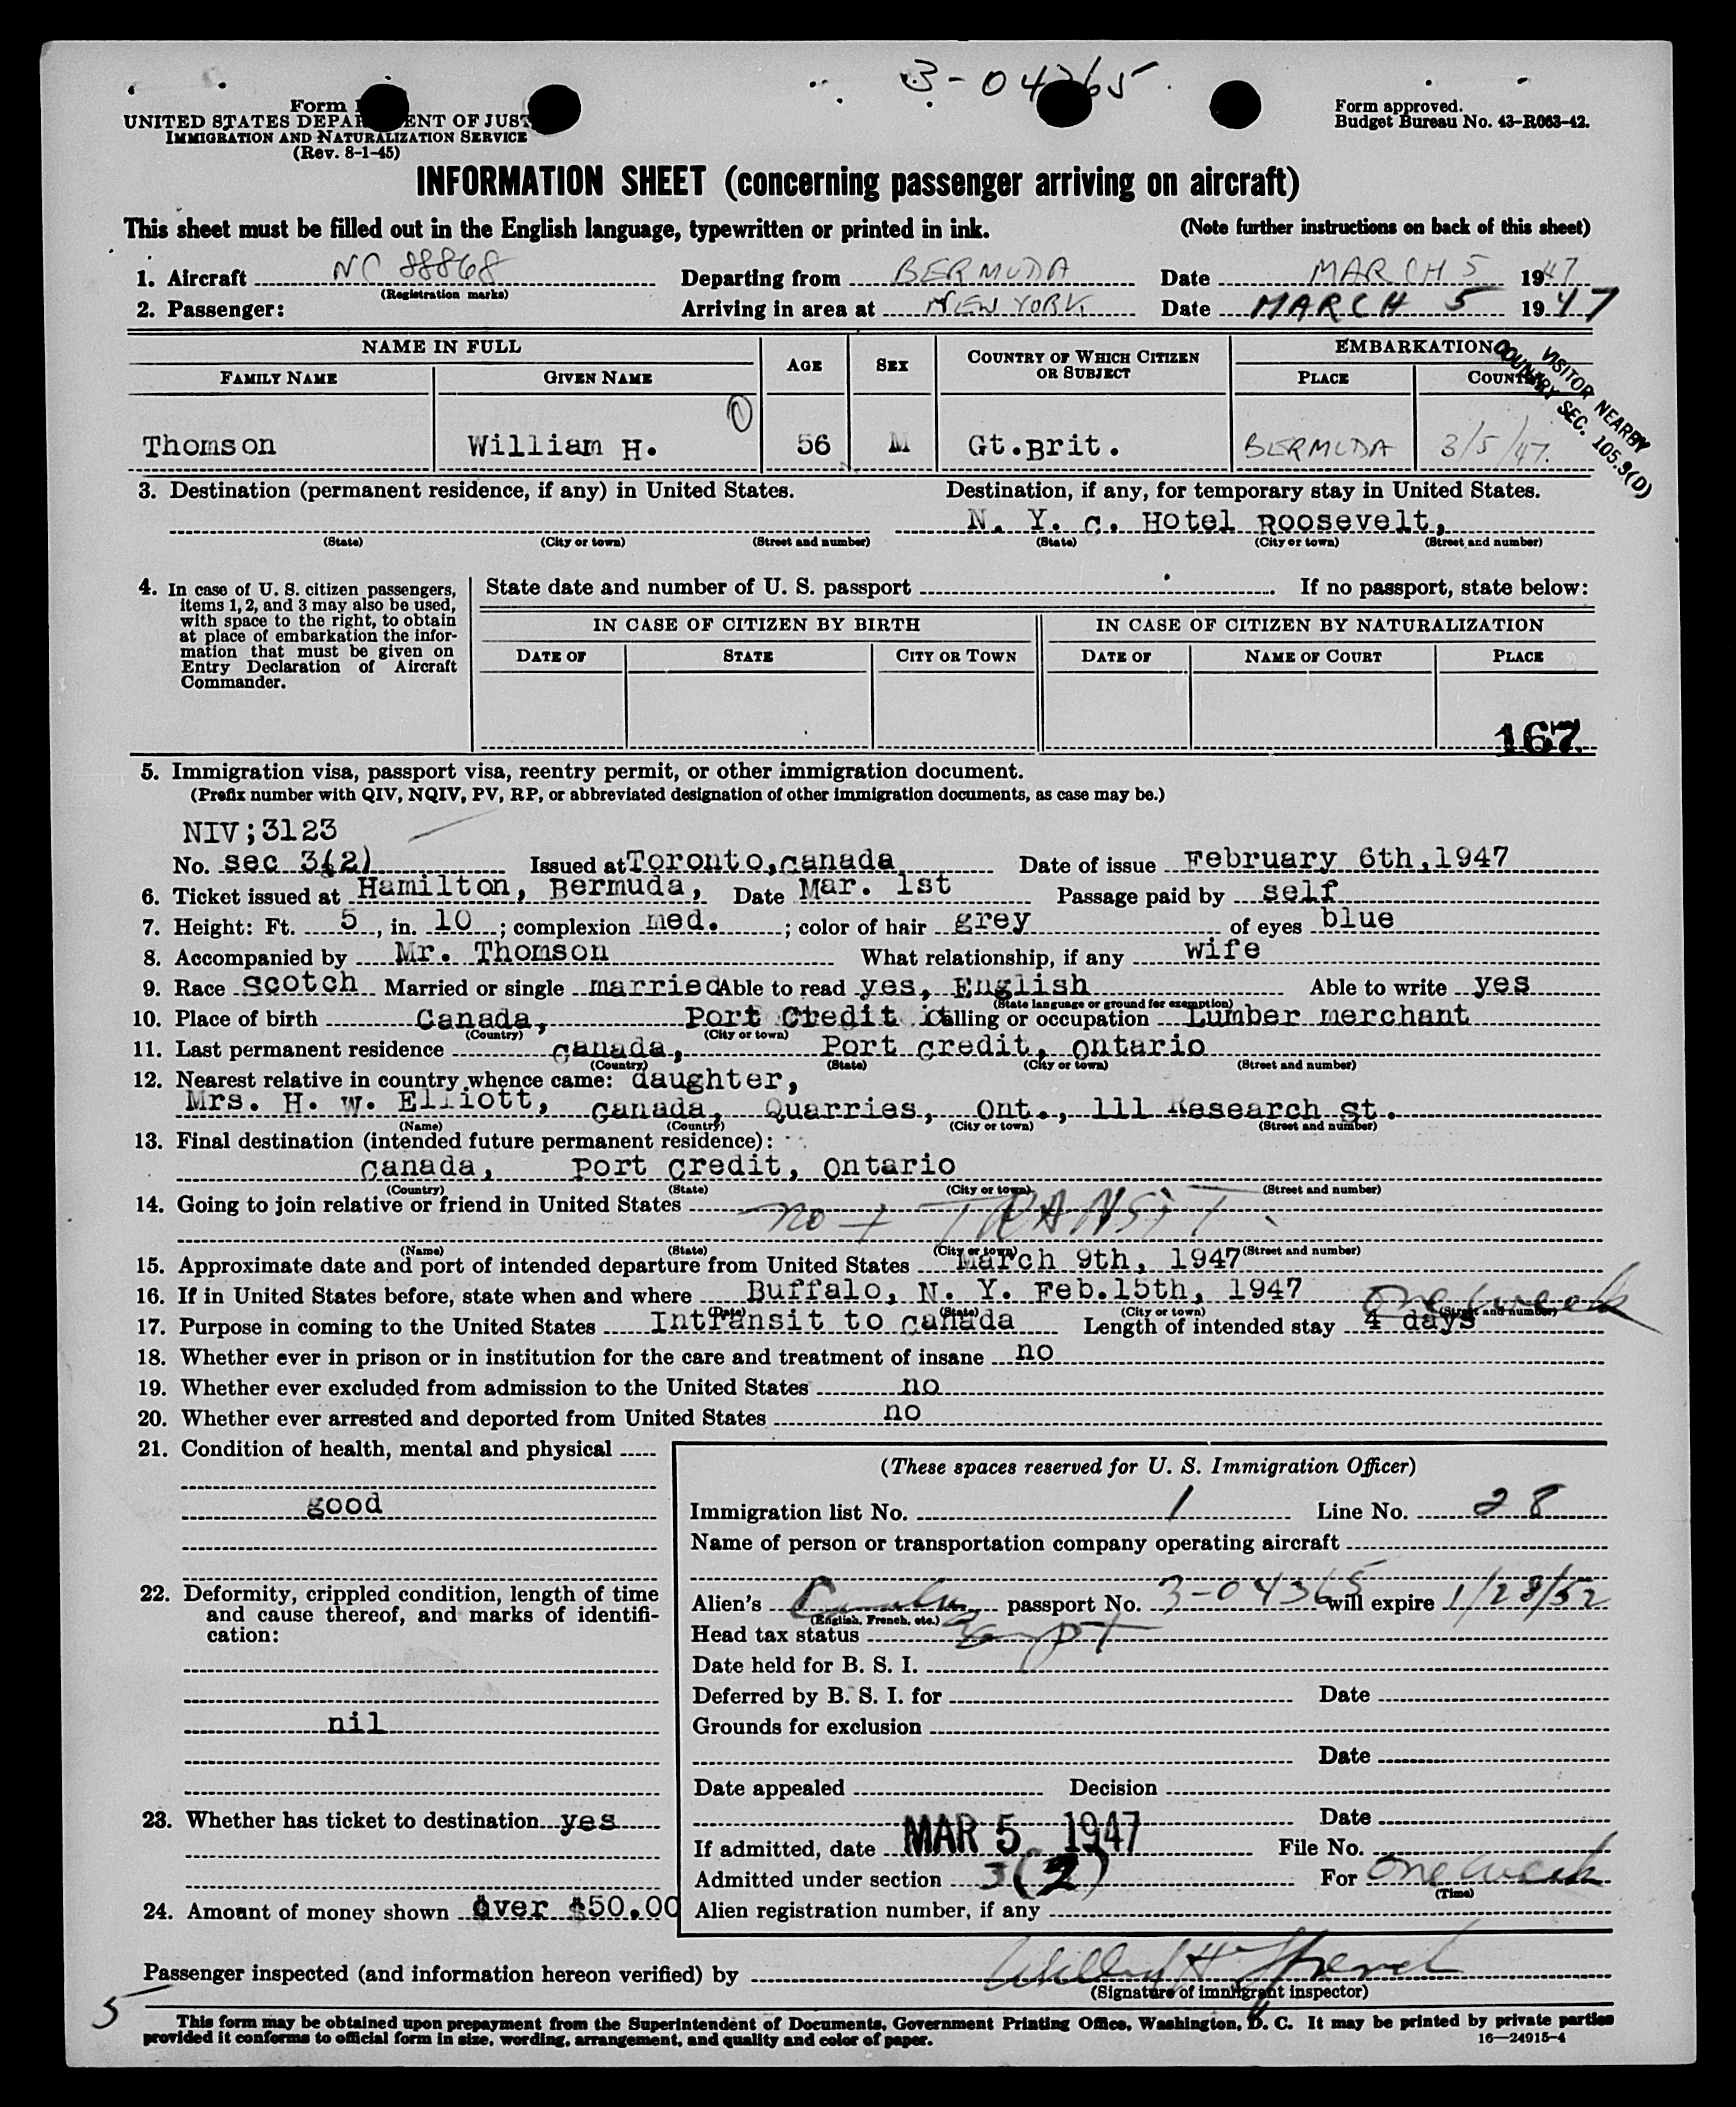 3-04365
Form
UNITED STATES DEPARTMENT OF JUST
IMMIGRATION AND NATURALIZATION SERVICE
(Rev. 8-1-45)
Form approved.
Budget Bureau No. 43-R063-42.
INFORMATION SHEET (concerning passenger arriving on aircraft)
This sheet must be filled out in the English language, typewritten or printed in ink. (Note further instructions on back of this sheet)
1. Aircraft NC 88868 Departing from BERMUDA Date MARCH 5 1947
(Registration marks)
2. Passenger: Arriving in area at NEW YORK Date MARCH 5 1947
NAME IN FULL AGE SEX COUNTRY OF WHICH CITIZEN OR SUBJECT EMBARKATION
FAMILY NAME GIVEN NAME PLACE COUNTRY
VISITOR NEARBY
COUNTRY SEC. 105.3(D)
Thomson William H. 56 M Gt.Brit. BERMUDA 3/5/47.
3. Destination (permanent residence, if any) in United States. Destination, if any, for temporary stay in United States.
N. Y. C. Hotel Roosevelt,
(State) (City or town) (Street and number) (State) (City or town) (Street and number)
4. In case of U. S. citizen passengers, items 1, 2, and 3 may also be used, with space to the right, to obtain at place of embarkation the information that must be given on Entry Declaration of Aircraft Commander.
State date and number of U. S. passport If no passport, state below:
IN CASE OF CITIZEN BY BIRTH IN CASE OF CITIZEN BY NATURALIZATION
DATE OF STATE CITY OR TOWN DATE OF NAME OF COURT PLACE
167
5. Immigration visa, passport visa, reentry permit, or other immigration document.
(Prefix number with QIV, NQIV, PV, RP, or abbreviated designation of other immigration documents, as case may be.)
NIV;3123
No. sec 3(2) Issued at Toronto,Canada Date of issue February 6th,1947
6. Ticket issued at Hamilton, Bermuda, Date Mar. 1st Passage paid by self
7. Height: Ft. 5, in. 10; complexion med.; color of hair grey of eyes blue
8. Accompanied by Mr. Thomson What relationship, if any wife
9. Race Scotch Married or single married Able to read yes, English Able to write yes
(State language or ground for exemption)
10. Place of birth Canada, Port Credit Calling or occupation Lumber merchant
(Country) (City or town)
11. Last permanent residence Canada, Port Credit, Ontario
(Country) (State) (City or town) (Street and number)
12. Nearest relative in country whence came: daughter,
Mrs. H. W. Elliott, Canada, Quarries, Ont., 111 Research St.
(Name) (Country) (City or town) (Street and number)
13. Final destination (intended future permanent residence):
Canada, Port Credit, Ontario
(Country) (State) (City or town) (Street and number)
14. Going to join relative or friend in United States no + TRANSIT
(Name) (State) (City or town) (Street and number)
15. Approximate date and port of intended departure from United States March 9th, 1947
16. If in United States before, state when and where Buffalo, N. Y. Feb.15th, 1947 one week
(Date) (State) (City or town) (Street and number)
17. Purpose in coming to the United States Intransit to Canada Length of intended stay 4 days
18. Whether ever in prison or in institution for the care and treatment of insane no
19. Whether ever excluded from admission to the United States no
20. Whether ever arrested and deported from United States no
21. Condition of health, mental and physical
good
22. Deformity, crippled condition, length of time and cause thereof, and marks of identification:
nil
23. Whether has ticket to destination yes
24. Amount of money shown over $50.00
(These spaces reserved for U. S. Immigration Officer)
Immigration list No. 1 Line No. 28
Name of person or transportation company operating aircraft
Alien's passport No. 3-04365 will expire 1/28/52
(English, French, etc.)
Head tax status
Date held for B. S. I.
Deferred by B. S. I. for Date
Grounds for exclusion
Date
Date appealed Decision
Date
If admitted, date MAR 5 1947 File No.
Admitted under section 3(2) For one week
(Time)
Alien registration number, if any
Passenger inspected (and information hereon verified) by
(Signature of immigrant inspector)
5
This form may be obtained upon prepayment from the Superintendent of Documents, Government Printing Office, Washington, D. C. It may be printed by private parties
provided it conforms to official form in size, wording, arrangement, and quality and color of paper. 16—24915-4